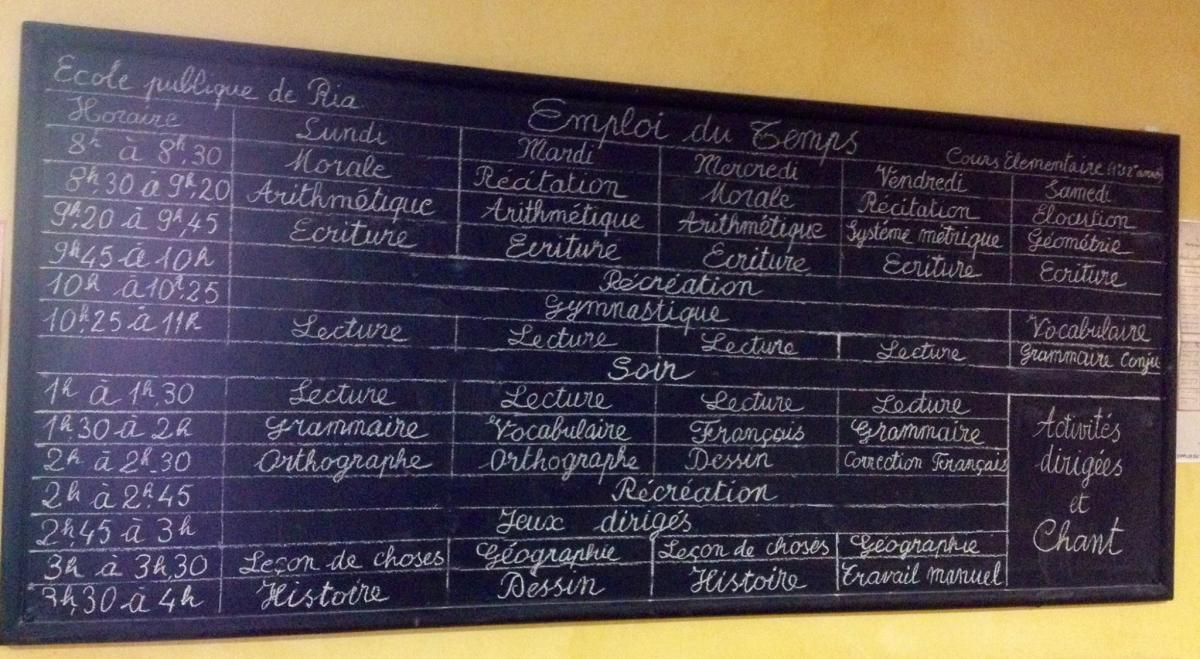 Ecole publique de Ria
Emploi du Temps
Cours Elementaire (1e et 2e année)
Horaire Lundi Mardi Mercredi Vendredi Samedi
8h à 8h,30 Morale Récitation Morale Récitation Elocution
8h30 à 9h,20 Arithmétique Arithmétique Arithmétique Système métrique Géométrie
9h,20 à 9h,45 Ecriture Ecriture Ecriture Ecriture Ecriture
9h45 à 10h Récréation
10h à 10h,25 Gymnastique Vocabulaire
10h,25 à 11h Lecture Lecture Lecture Lecture Grammaire Conju
Soir
1h à 1h,30 Lecture Lecture Lecture Lecture
1h,30 à 2h Grammaire Vocabulaire Français Grammaire
2h à 2h,30 Orthographe Orthographe Dessin Correction Français
2h à 2h,45 Récréation
2h45 à 3h Jeux dirigés
3h à 3h,30 Leçon de choses Géographie Leçon de choses Géographie
3h,30 à 4h Histoire Dessin Histoire Travail manuel
Activités
dirigées
et
Chant